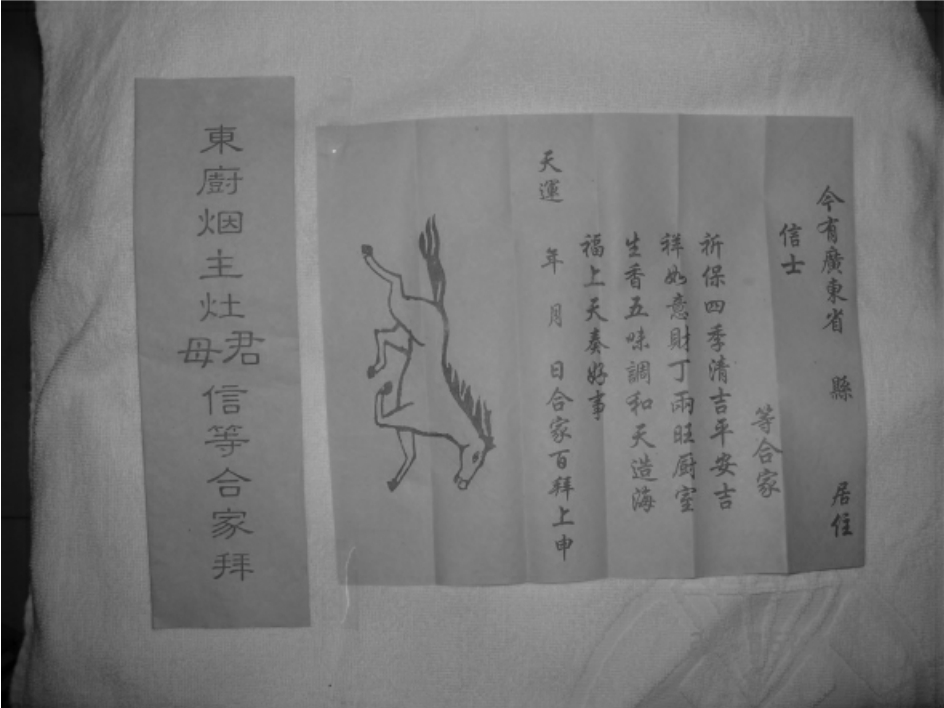 東廚烟主灶君母信等合家拜
今有廣東省 縣 居住
信士 等合家
祈保四季清吉平安吉
祥如意財丁兩旺厨室
生香五味調和天造海
福上天奏好事
天運 年 月 日合家百拜上申